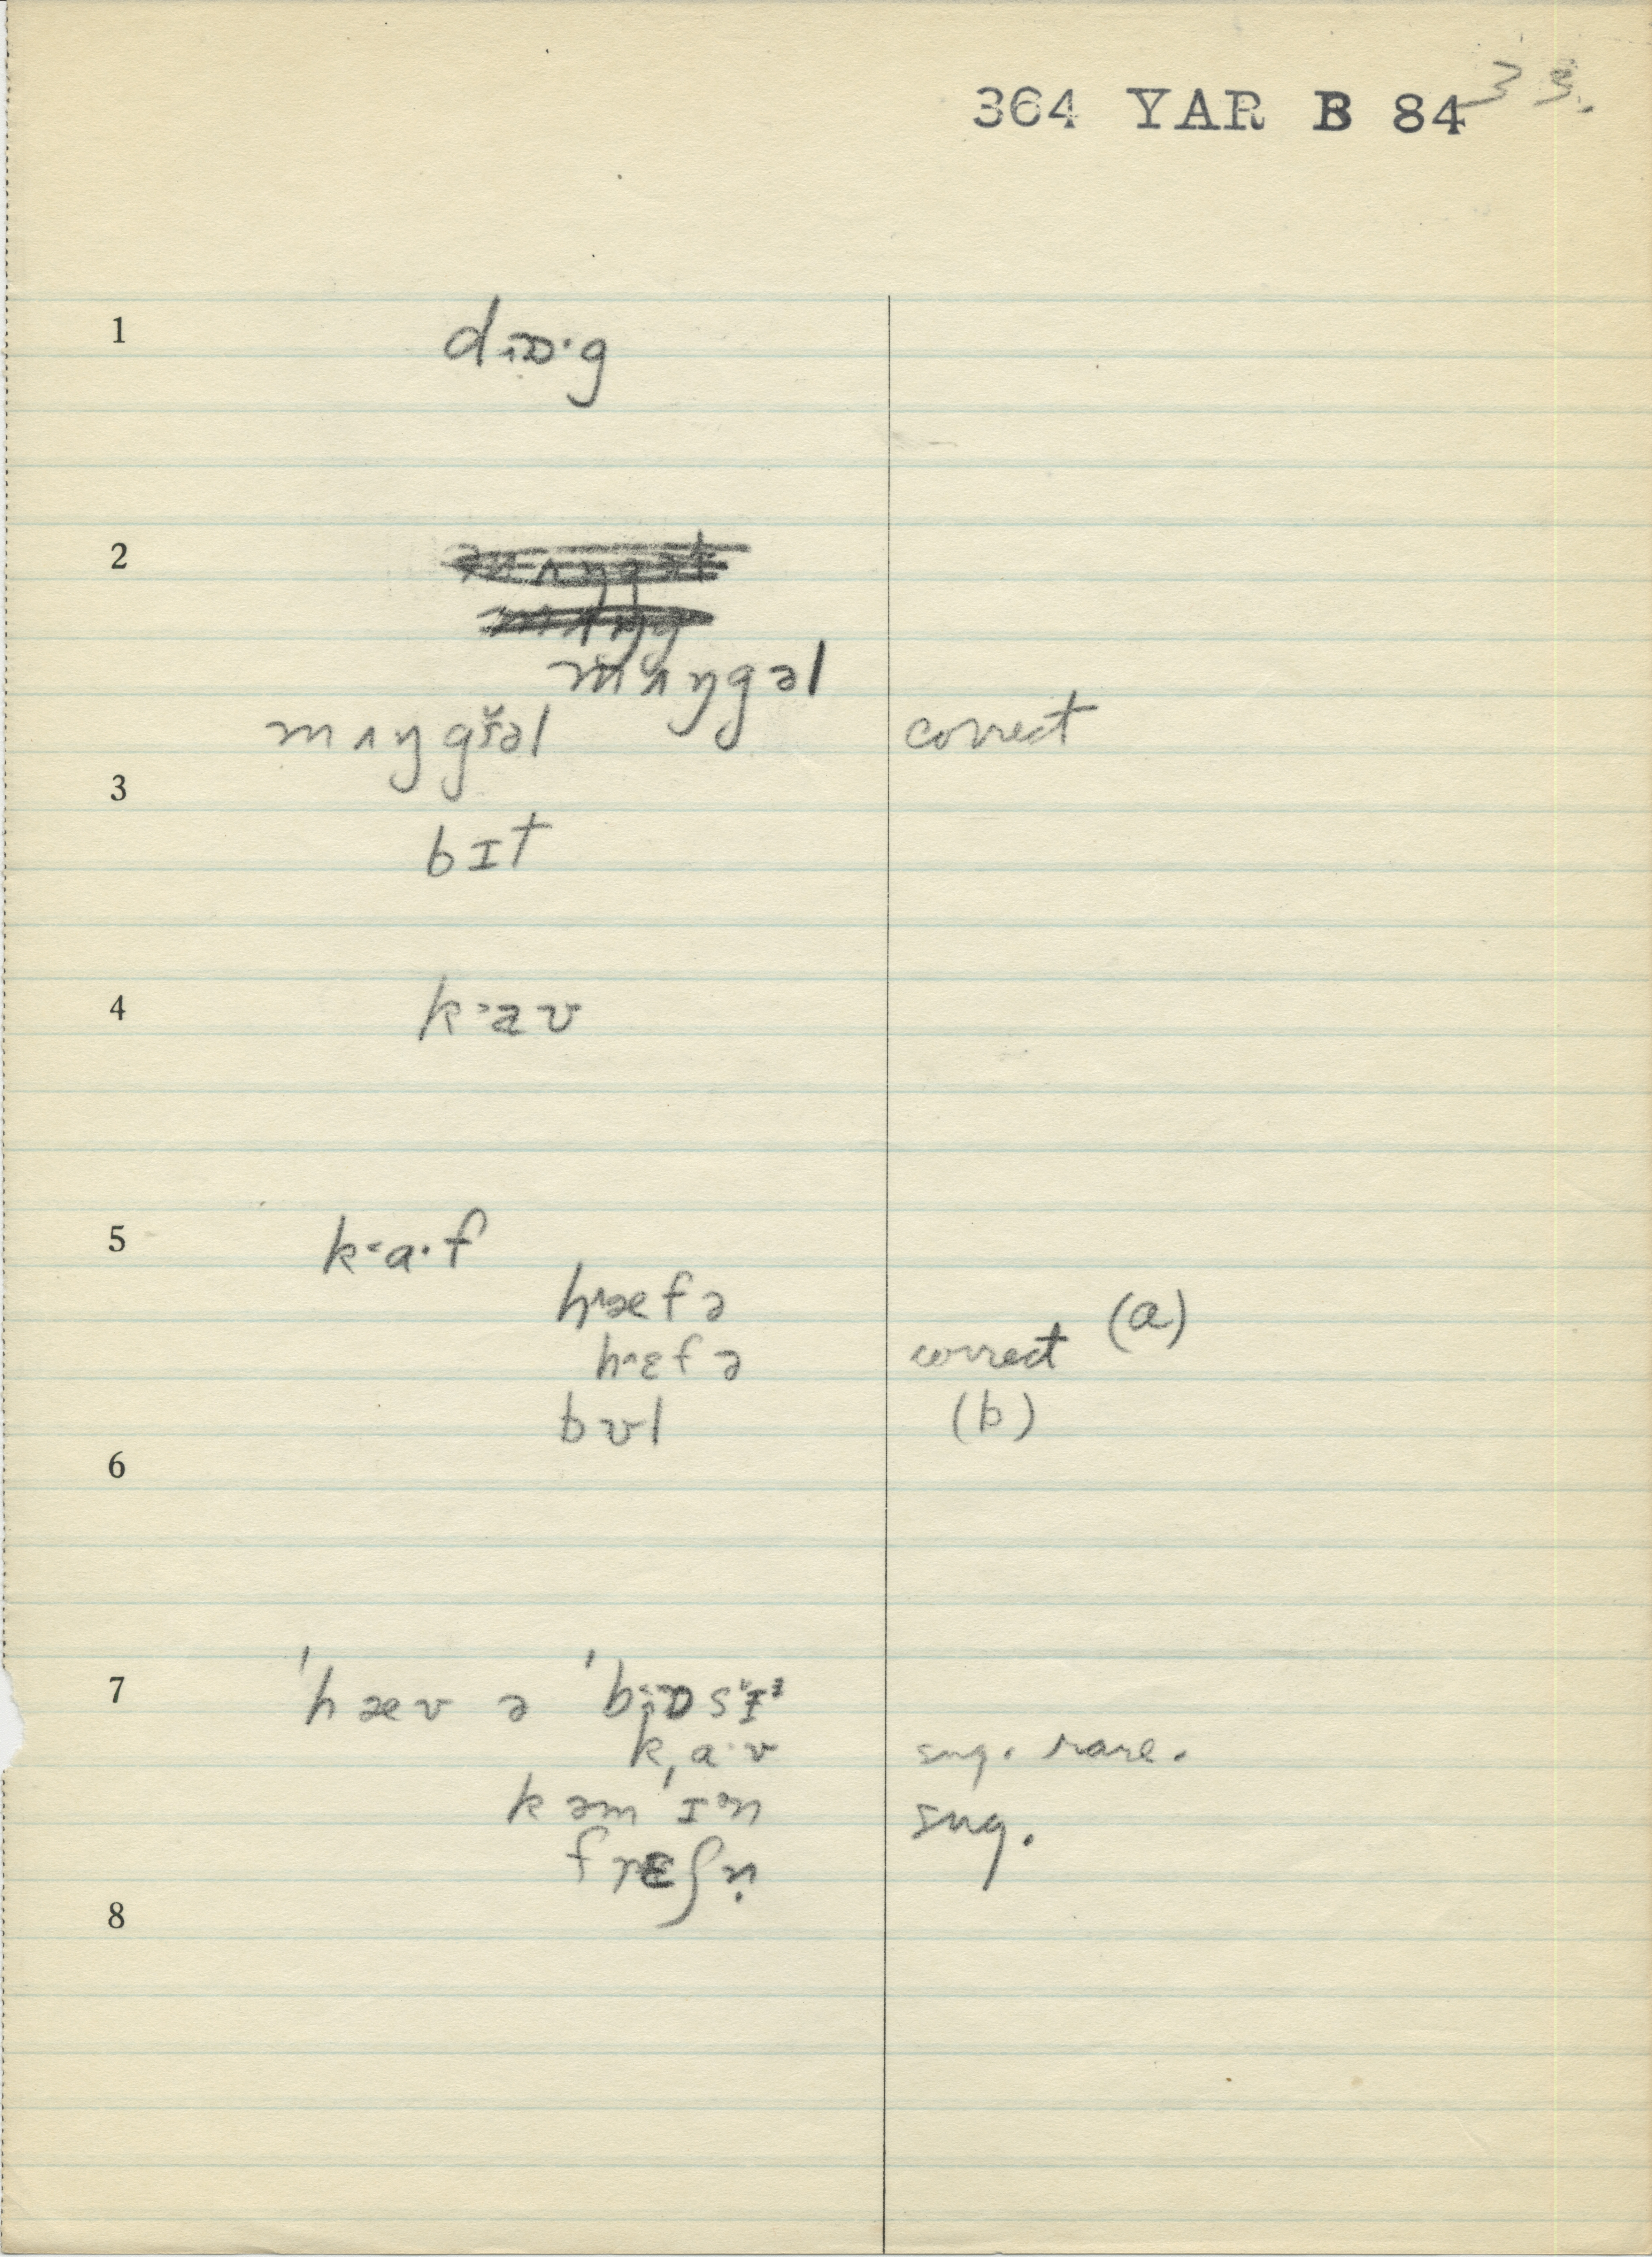 364 YAR B 84 33.
1 dɒ·g
2
mʌŋgəl
mʌŋgřəl correct
3
bɪt
4 kaʊ
5 ka·f
hæfə (a)
hɛfə correct
bʊl (b)
6
7 'hæv ə 'bɒsɪ
ka·v sug. rare.
kəm'ɪᵊn sug.
frɛʃn̩
8